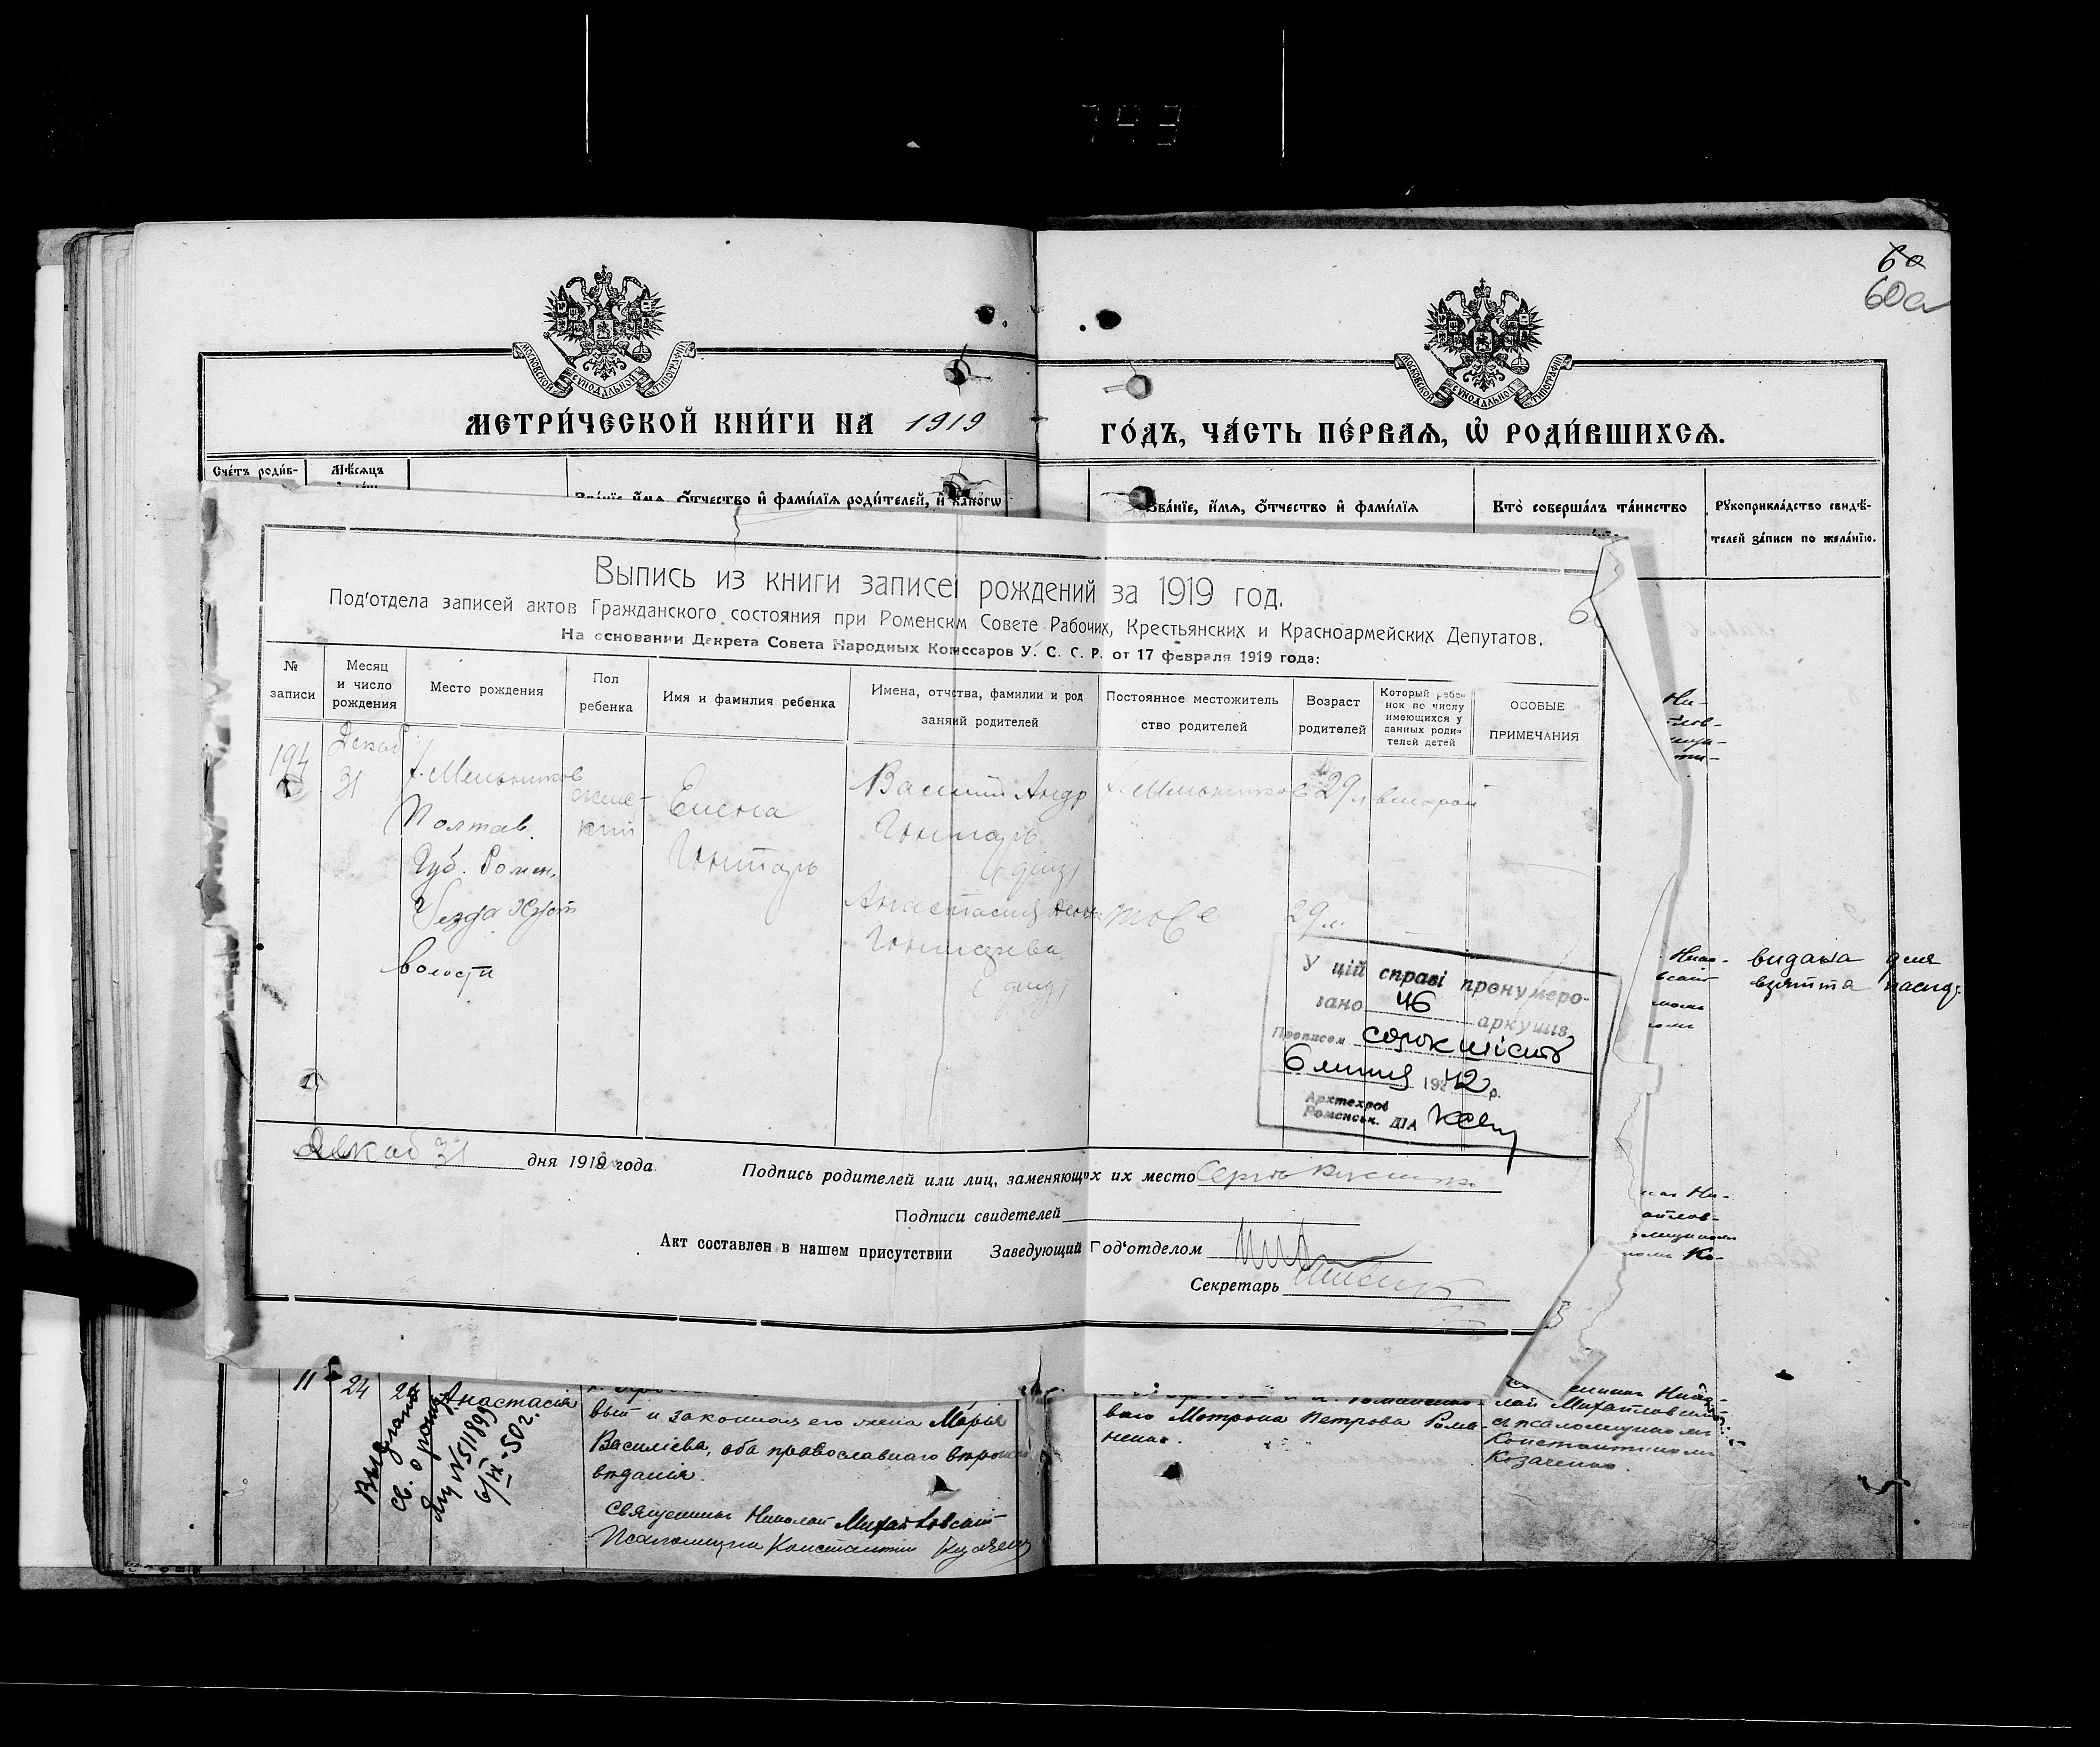 793
60
60а
МОСКОВСКОЙ СѴНОДАЛЬНОЙ ТИПОГРАФІИ
МОСКОВСКОЙ СѴНОДАЛЬНОЙ ТИПОГРАФІИ
МЕТРИ́ЧЕСКОЙ КНИ́ГИ НА 1919
ГО́ДЪ, ЧА́СТЬ ПЕ́РВАѦ, Ѡ҆ РОДИ́ВШИХСѦ.
Сче́тъ роди́в-
Мѣ́сѧцъ
Зва́нїе, и҆́мѧ, ѻ҆́тчество и҆ фами́лїѧ роди́телей, и҆ како́гѡ
Зва́нїе, и҆́мѧ, ѻ҆́тчество и҆ фами́лїѧ
Кто̀ соверша́лъ та́инство
Рꙋкоприкла́дство свидѣ́-
телей за́писи по жела́нїю.
Выпись из книги записей рождений за 1919 год.
Под'отдела записей актов Гражданского состояния при Роменскм Совете Рабочих, Крестьянских и Красноармейских Депутатов.
На основании Декрета Совета Народных Комссаров У. С. С. Р. от 17 февраля 1919 года:
№ записи
Месяц и число рождения
Место рождения
Пол ребенка
Имя и фамнлия ребенка
Имена, отчства, фамилии и род
заняий родителей
Постоянное местожитель
ство родителей
Возраст родителей
Который ребе-
нок по числу
имеющихся у
данных роди-
телей детей
ОСОБЫЕ
ПРИМЕЧАНИЯ
194
Декаб
31
х. Мельников
Полтав.
Губ. Ромен.
Уезда
волости
женс-
кий
Елена
Гонтарь
Василий Андр
Гонтарь
Анастасия
Гонтарева
х. Мельников
тоже
29 л
29 л.
второй
У цій справі пронумеро-
вано 46 аркушів,
Прописом сорок шість
6 липня 1942 р.
Архтехров
Роменськ. ДІА
Декаб 31 дня 1919 года.
Подпись родителей или лиц, заменяющих их место
Подписи свидетелей
Акт составлен в нашем присутствии Заведующий Под'отделом
Секретарь
видана для
взяття
11 24 24 Анастасія
Выдана
св. о рожд.
N511899
6/IX-50г.
вый и законная его жена Марія
Василіева, оба православнаго вѣроис
вѣданія.
Священникъ Николай Михайловскій
Псаломщикъ Константин Козаченко
ваго Матрона Петрова Рома-
ненко.
лай Михайловскій
съ псаломщикомъ
Константиномъ
Козаченко.